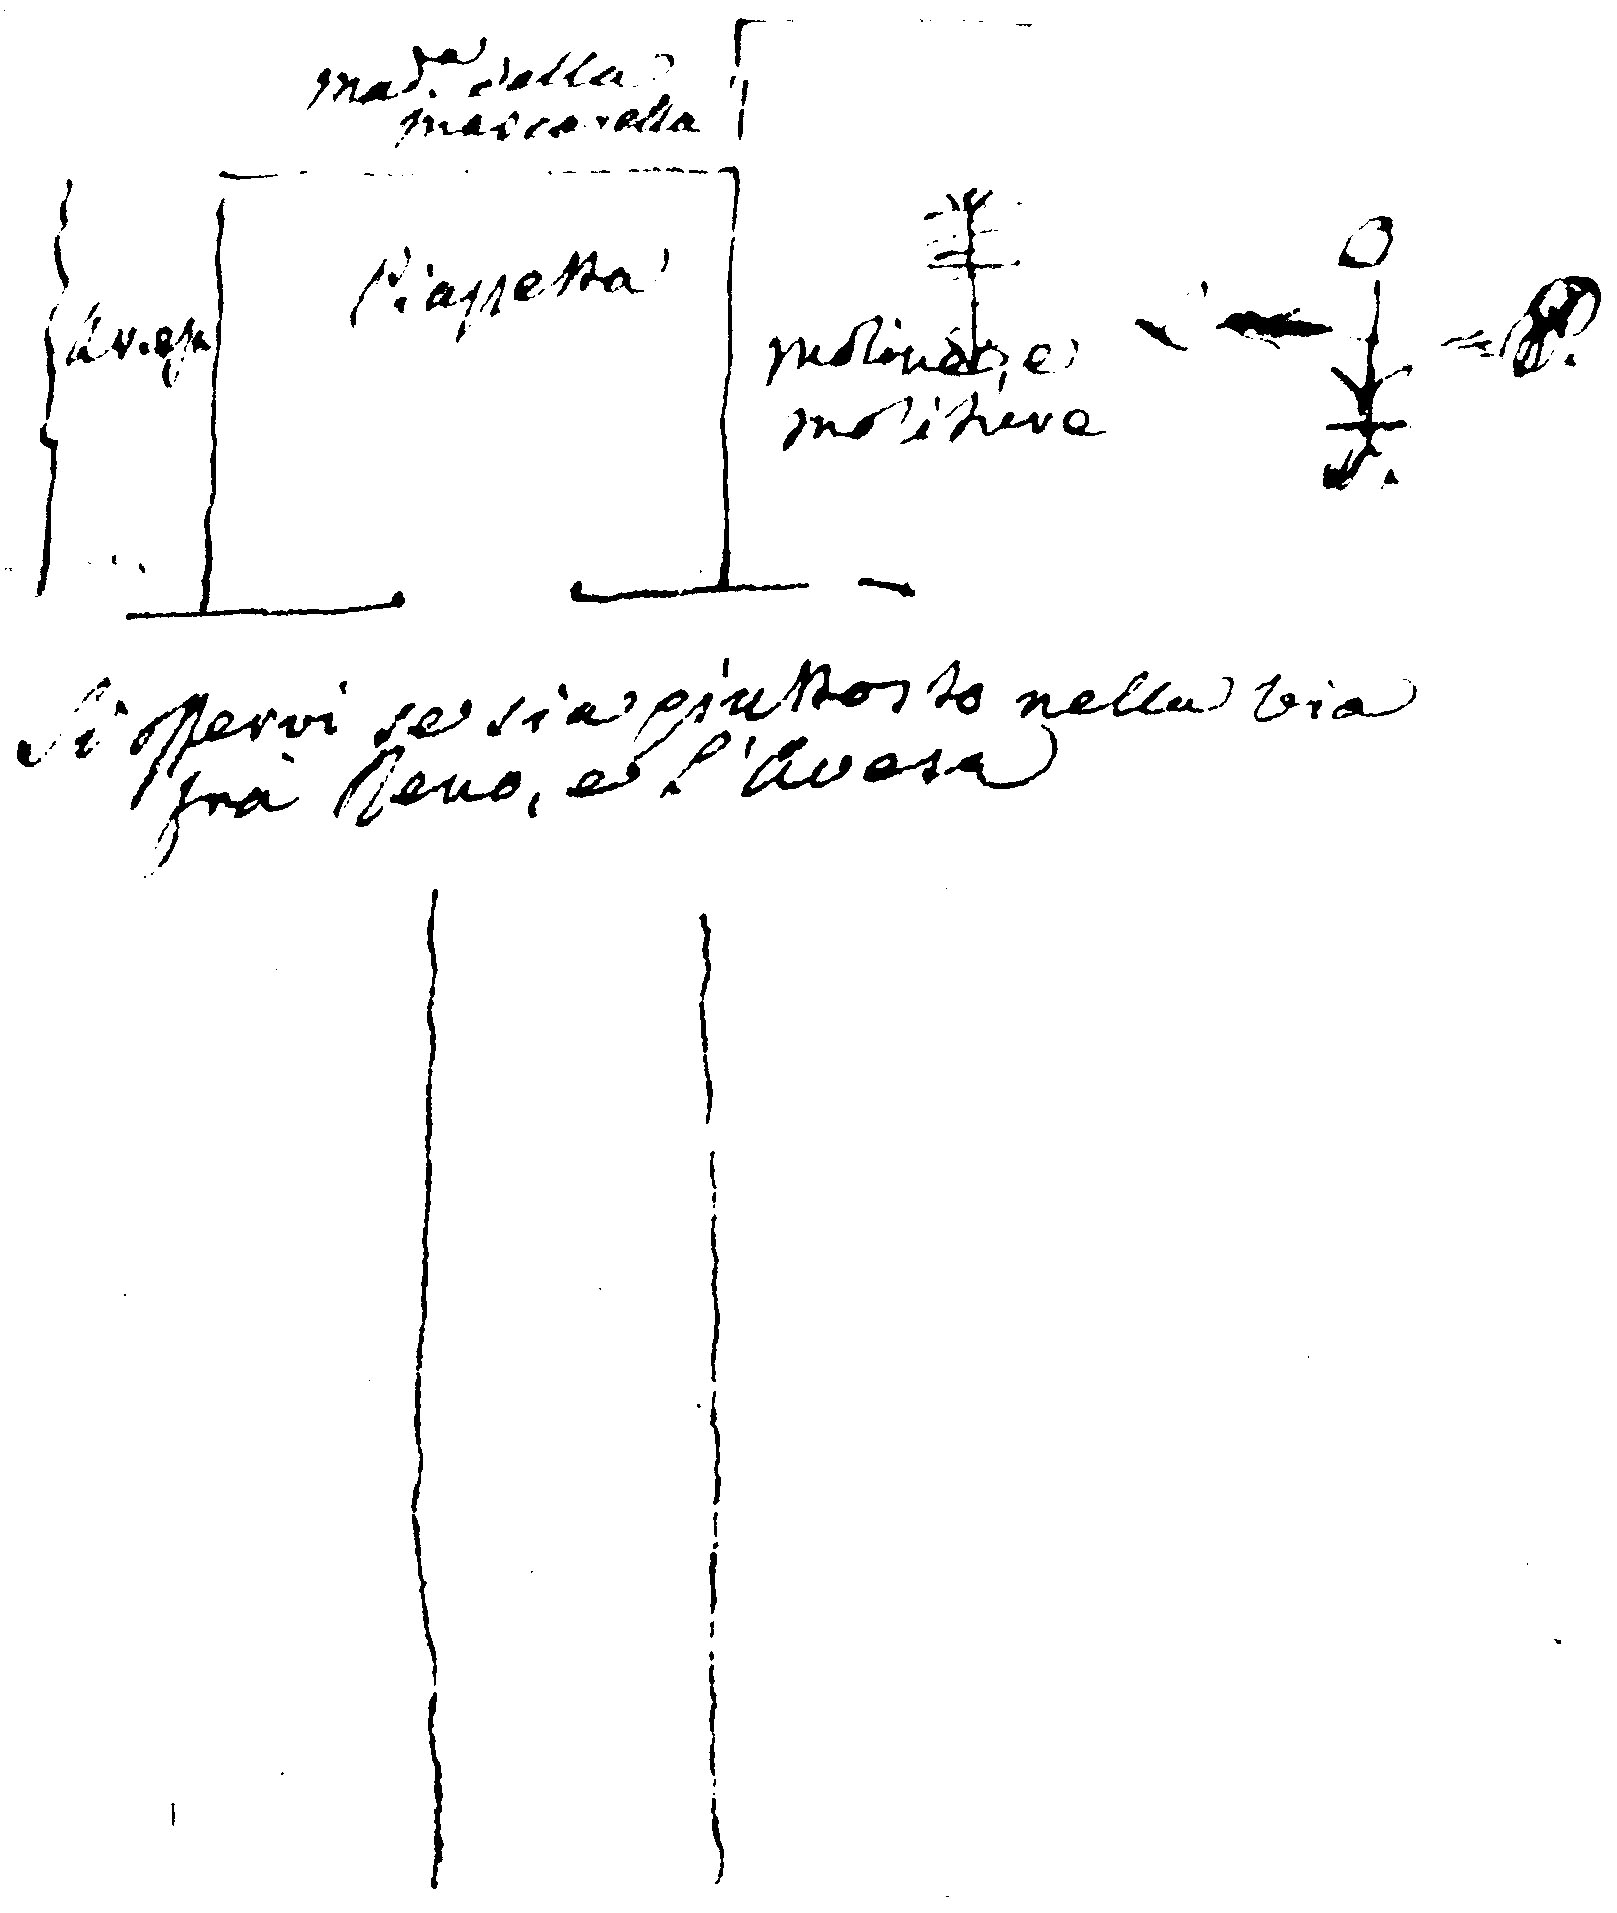 mad.a della
mascarella
Piazzetta
Avesa
molined, e
moliture
Si osservi se sia piuttosto nella via
frà Reno, e l'Avesa